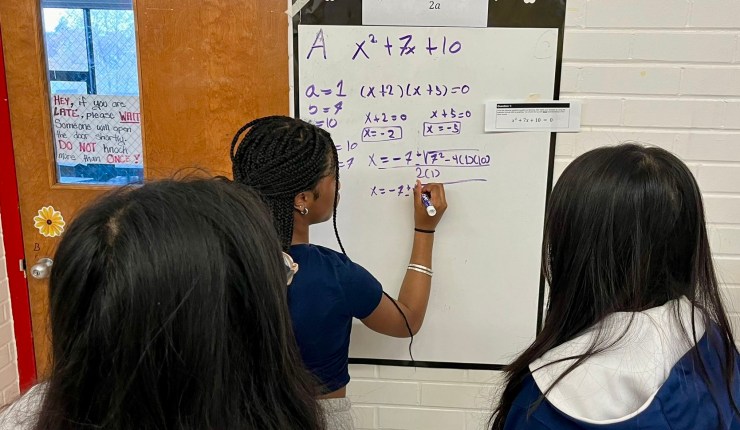 2a
A x² + 7x + 10
a = 1 (x+2)(x+5)=0
b = 7
c = 10
x+2=0 x+5=0
x=-2 x=-5
= 10
= 7
x = -7 ±√7² - 4(1)(10)
2(1)
x = -7 ±
x² + 7x + 10 = 0
HEY, if you are
LATE, please WAIT
Someone will open
the door shortly.
DO NOT knock
more than ONCE!
B